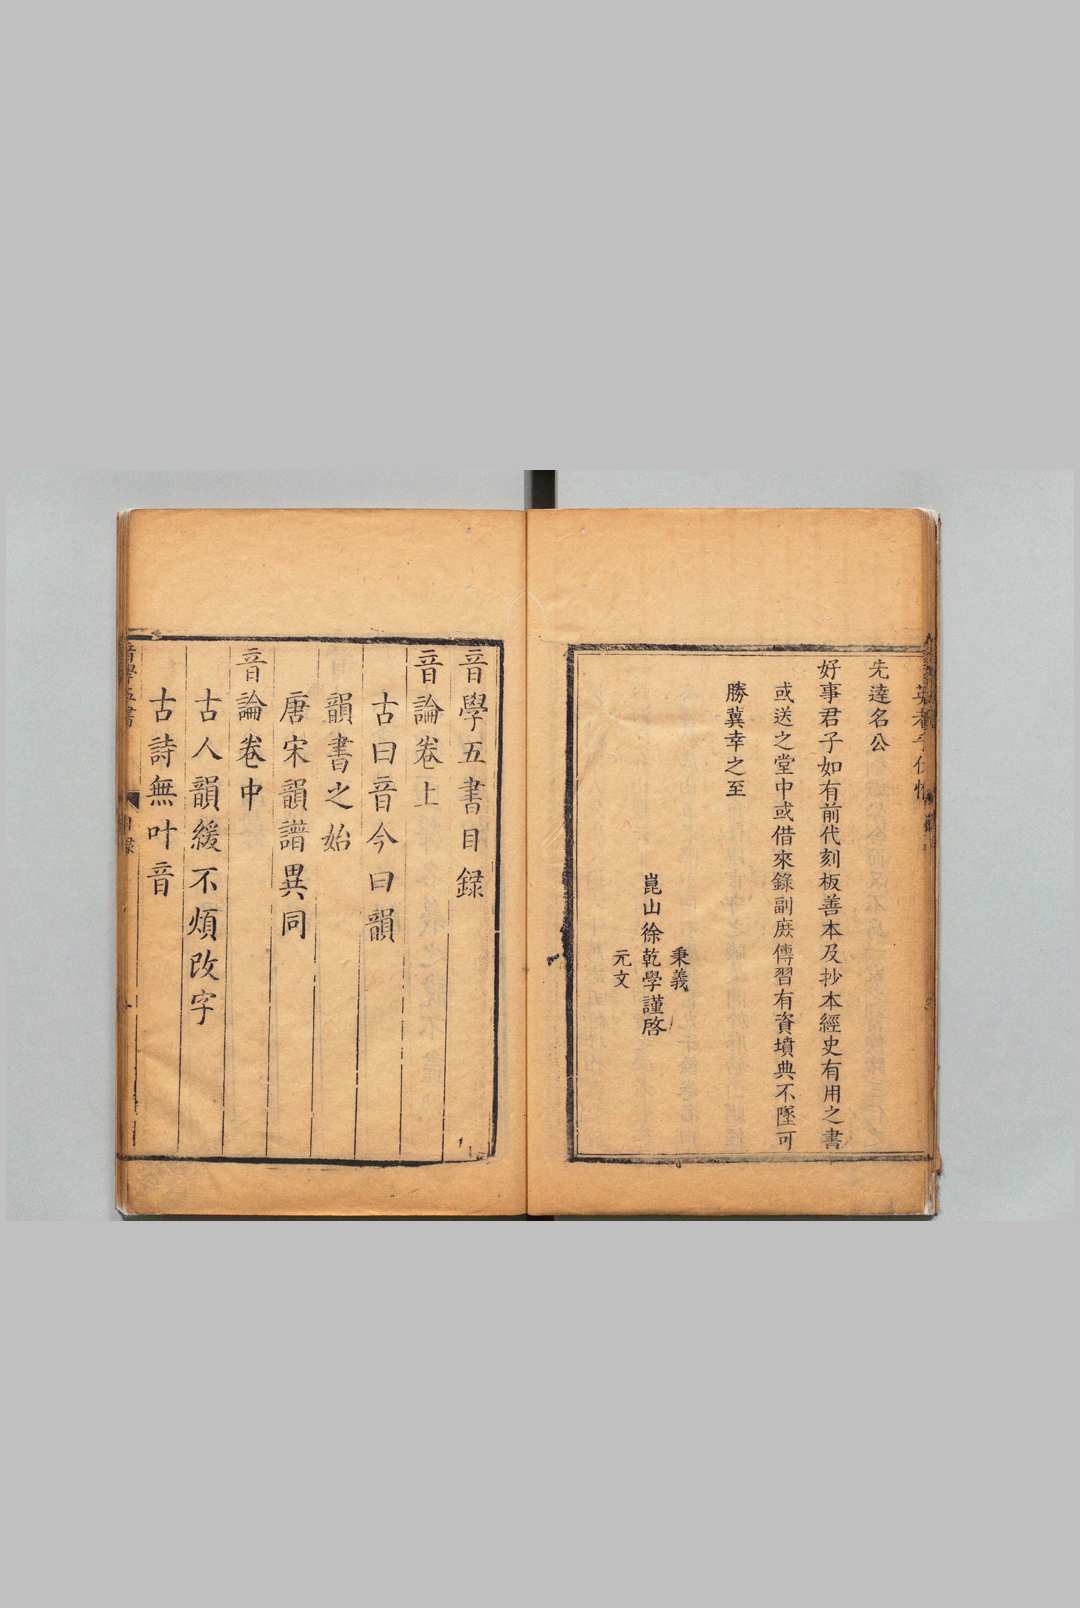 先達名公
好事君子如有前代刻板善本及抄本經史有用之書
或送之堂中或借來錄副庶傳習有資墳典不墜可
勝冀幸之至
秉義
崑山徐乾學謹啓
元文
音學五書目録
音論卷上
古曰音今曰韻
韻書之始
唐宋韻譜異同
音論卷中
古人韻緩不煩改字
古詩無叶音
音學五書
目錄